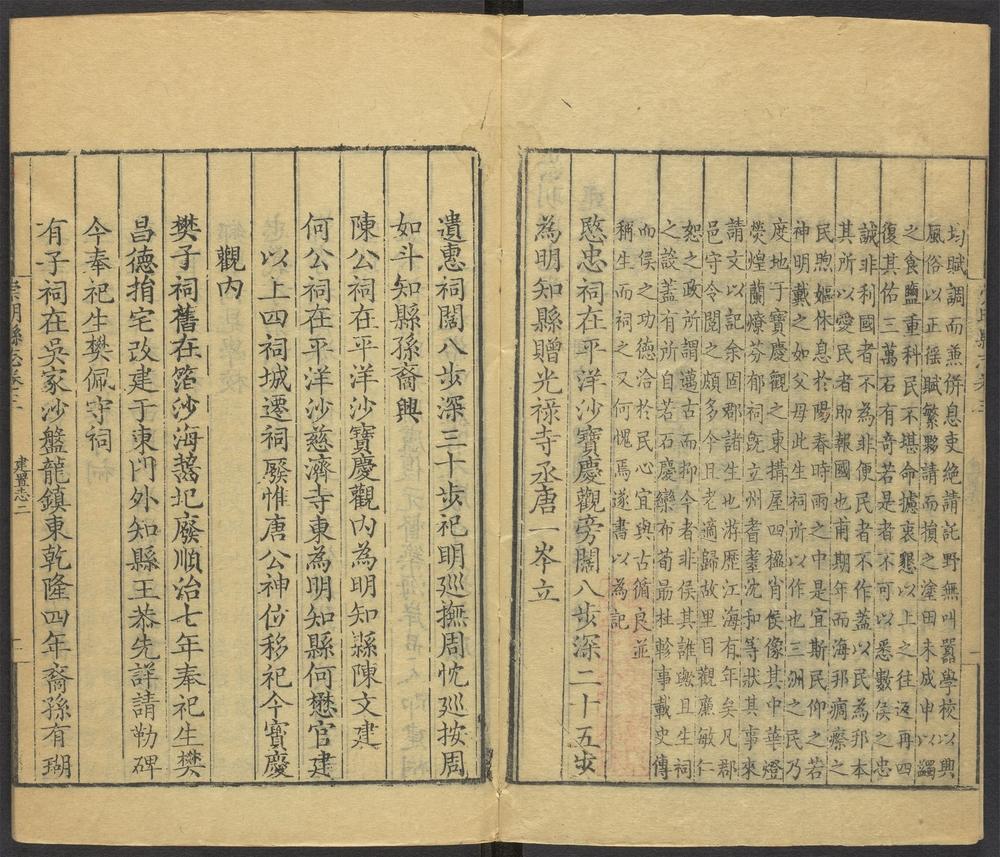 均賦調而蒹併息吏絶請託野無叫囂學校以興
風俗以正徭賦繁夥請而損之塗田未成申以蠲
之食鹽重科民不堪命攄衷懇以上之往返再四
復其佑三萬石有奇若是者不可以悉數侯之忠
誠非利國者不為非便民者不作蓋以民為邦本
其所以愛民者即報國也甫期年而海邦瘸瘵之
民煦嫗休息於陽春時雨之中是宜斯民仰之若
神明戴之如父母此生祠所以作也三洲之民乃
度地于寶慶觀之東搆屋四楹肖侯像其中華燈
熒煌蘭燎芬郁祠旣立州耆耋沈和等狀其事來
請文以記余固郡諸生也游歷江海有年矣凡郡
邑守令閱之頗多今且老適歸故里目觀亷敏仁
恕之政所謂邁古而抑今者非侯其誰歟且生祠
之設蓋有所自若石慶欒布荀朂杜軫事載史傳
而侯之功德洽於民心宜與古循良並
稱生而祠之又何愧焉遂書以為記
愍忠祠在平洋沙寶慶觀旁闊八步深二十五步
為明知縣贈光祿寺丞唐一岑立
遺惠祠闊八步深三十步祀明廵撫周忱廵按周
如斗知縣孫裔興
陳公祠在平洋沙寶慶觀内為明知縣陳文建
何公祠在平洋沙慈濟寺東為明知縣何懋官建
以上四祠城遷祠廢惟唐公神位移祀今寶慶
觀内
樊子祠舊在箔沙海嚙圮廢順治七年奉祀生樊
昌德捐宅改建于東門外知縣王恭先詳請勒碑
今奉祀生樊佩守祠
有子祠在吳家沙盤龍鎮東乾隆四年裔孫有瑚
崇明縣志卷三
建置志二